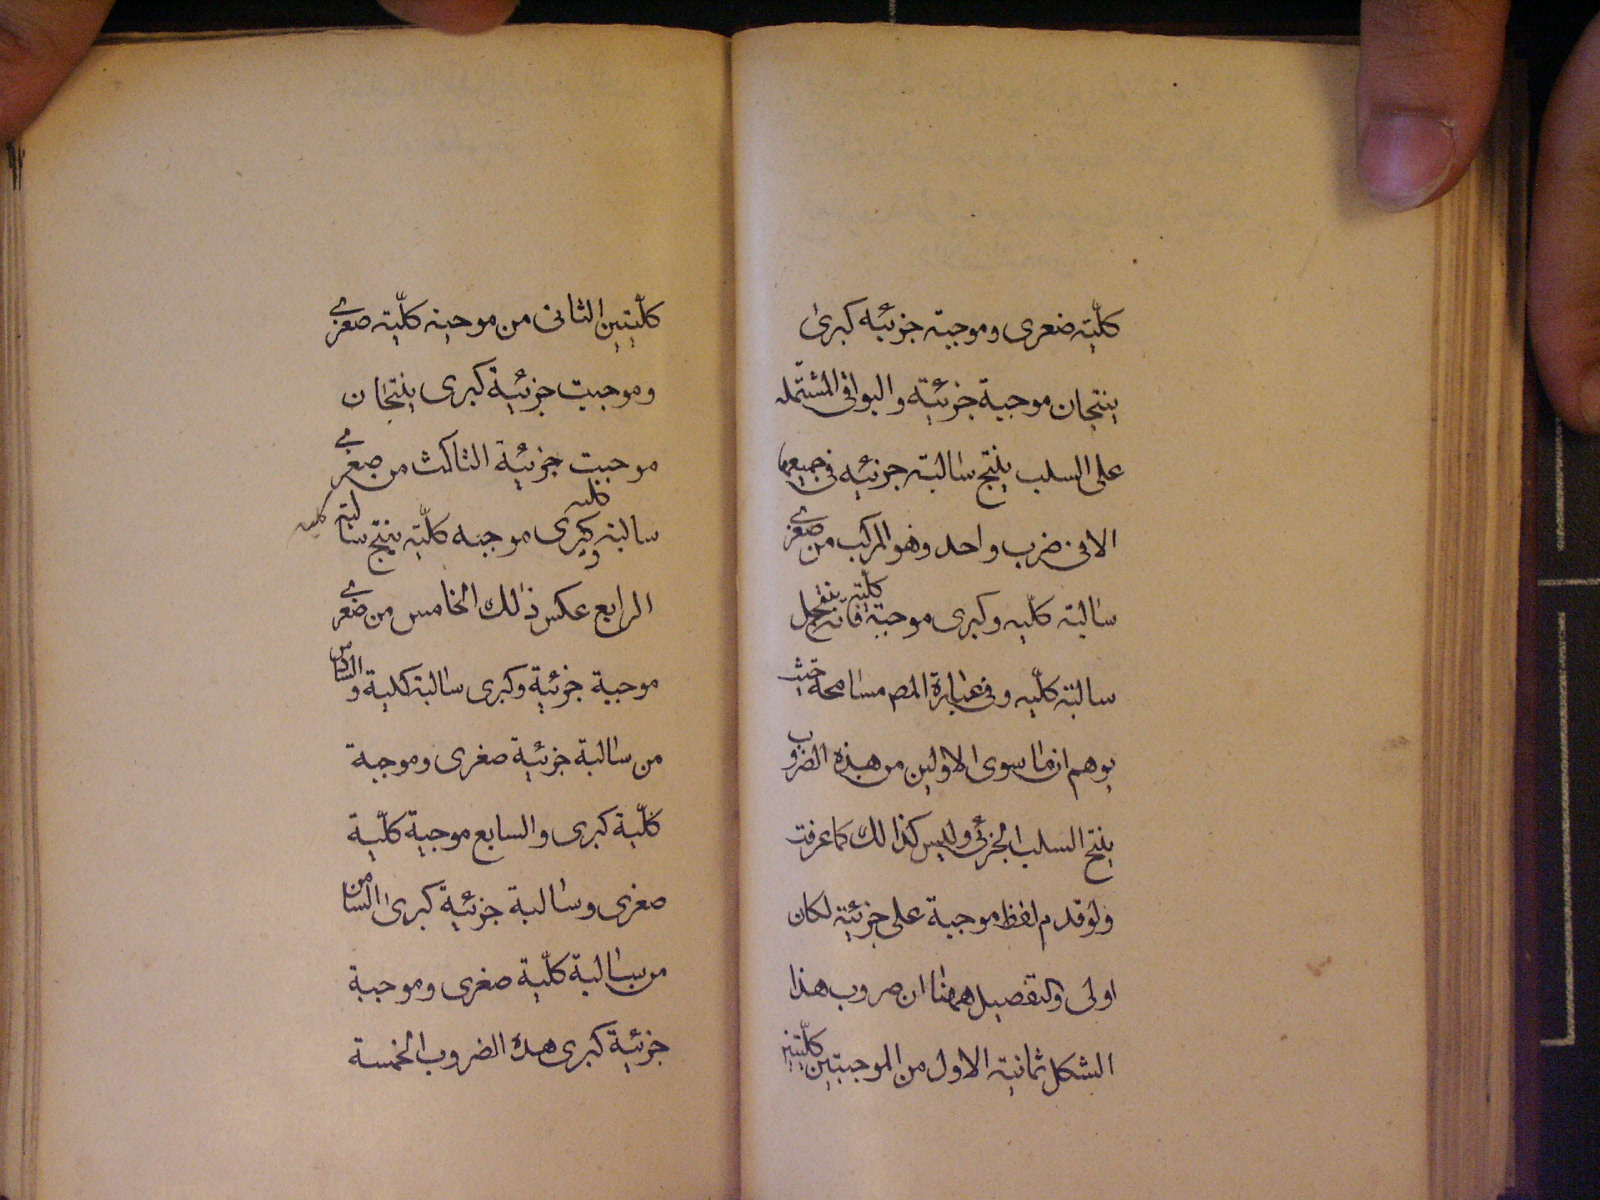 كلّيّه صغرى وموجبة جزئيه كبرى
ينتجان موجبة جزئيّة والبواقى المشتمله
على السلب ينتج سالبة جزئيه فى جميعها
الا فى ضرب واحد وهو المركب من صغرى
سالبة كلّيه وكبرى موجبة كلّيّة فانّه ينتج
سالبة كلّيه وفى عبارة المص مسامحة حيث
يوهم ان ما سوى الاولين من هذه الضروب
ينتج السلب الجزئى وليس كذالك كما عرفت
ولو قدم لفظ موجبة على جزئيّة لكان
اولى والتفصيل ههنا ان ضروب هذا
الشكل ثمانية الاول من الموجبتين كلّيتين
كلّيتين الثانى من موجبة كلّيّه صغرى
وموجبت جزئية كبرى ينتجان
موجبت جزئية الثالث من صغرى
سالبة كليه وكبرى موجبه كلّيّه ينتج سالبة كليه
الرابع عكس ذالك الخامس من صغرى
موجبة جزئية وكبرى سالبة كلية والسادس
من سالبة جزئية صغرى وموجبة
كلّيّة كبرى والسابع موجبة كلّيّة
صغرى وسالبة جزئية كبرى الثامن
من سالبة كلّيّة صغرى وموجبة
جزئية كبرى هذه الضروب الخمسة